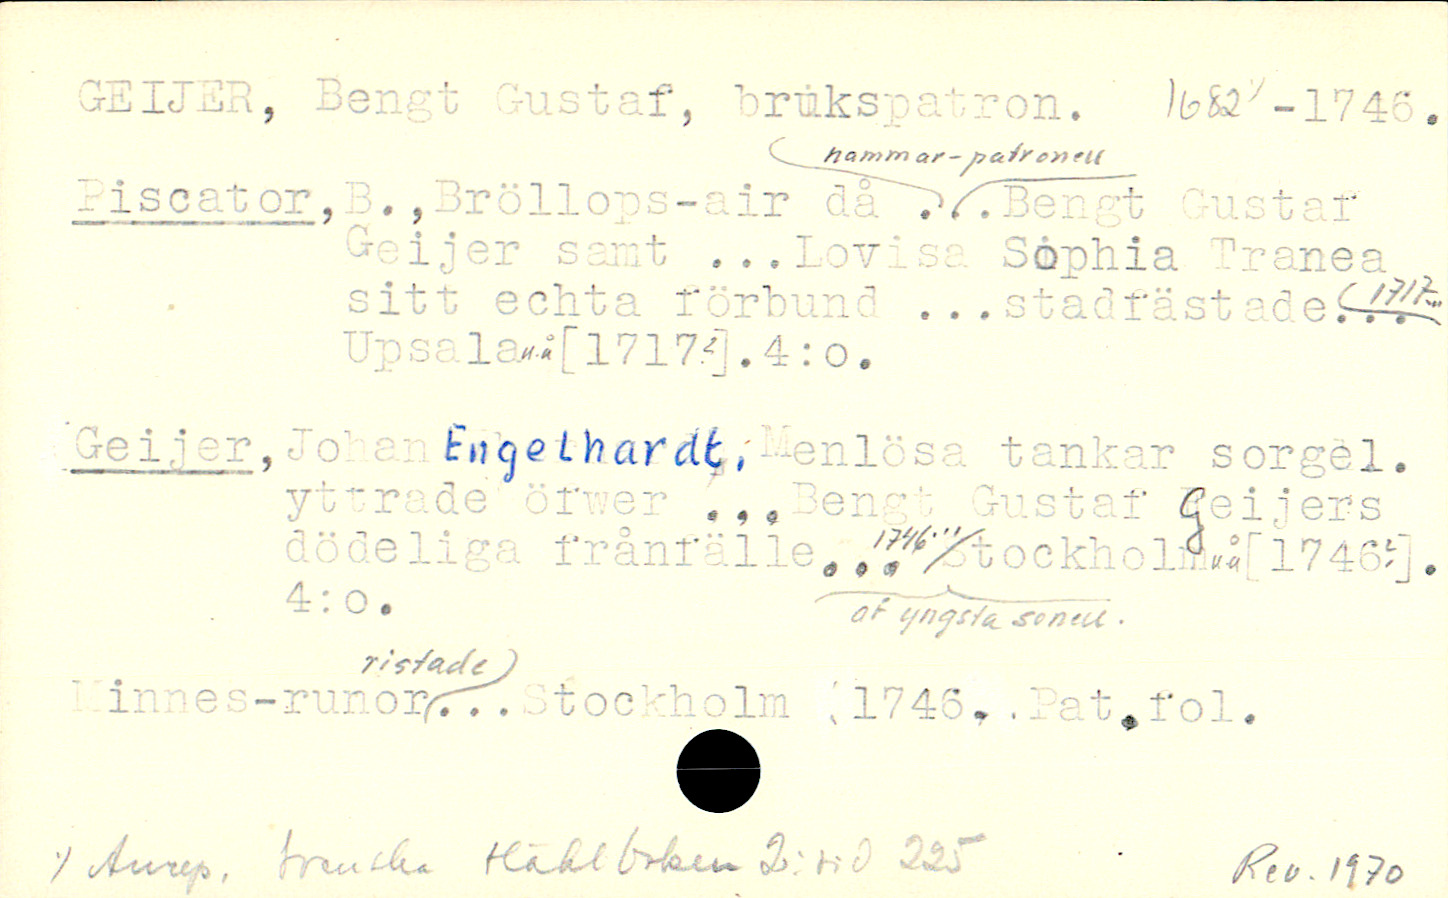 GEIJER, Bengt Gustaf, brukspatron. 1682¹⁾-1746.
hammar-patronen
Piscator, B., Bröllops-air då ... Bengt Gustaf
Geijer samt ...Lovisa Sophia Tranea
sitt echta förbund ...stadfästade... 1717...
Upsala u.å [1717?]. 4:o.
Geijer, Johan Engelhardt, Menlösa tankar sorgel.
yttrade öfwer ...Bengt Gustaf Geijers
dödeliga frånfälle... 1746... Stockholm u.å [1746?].
4:o.
af yngsta sonen.
ristade
Minnes-runor... Stockholm 1746. Pat.fol.
¹⁾ Anrep, Svenska släktboken 2: sid 225
Rev. 1970